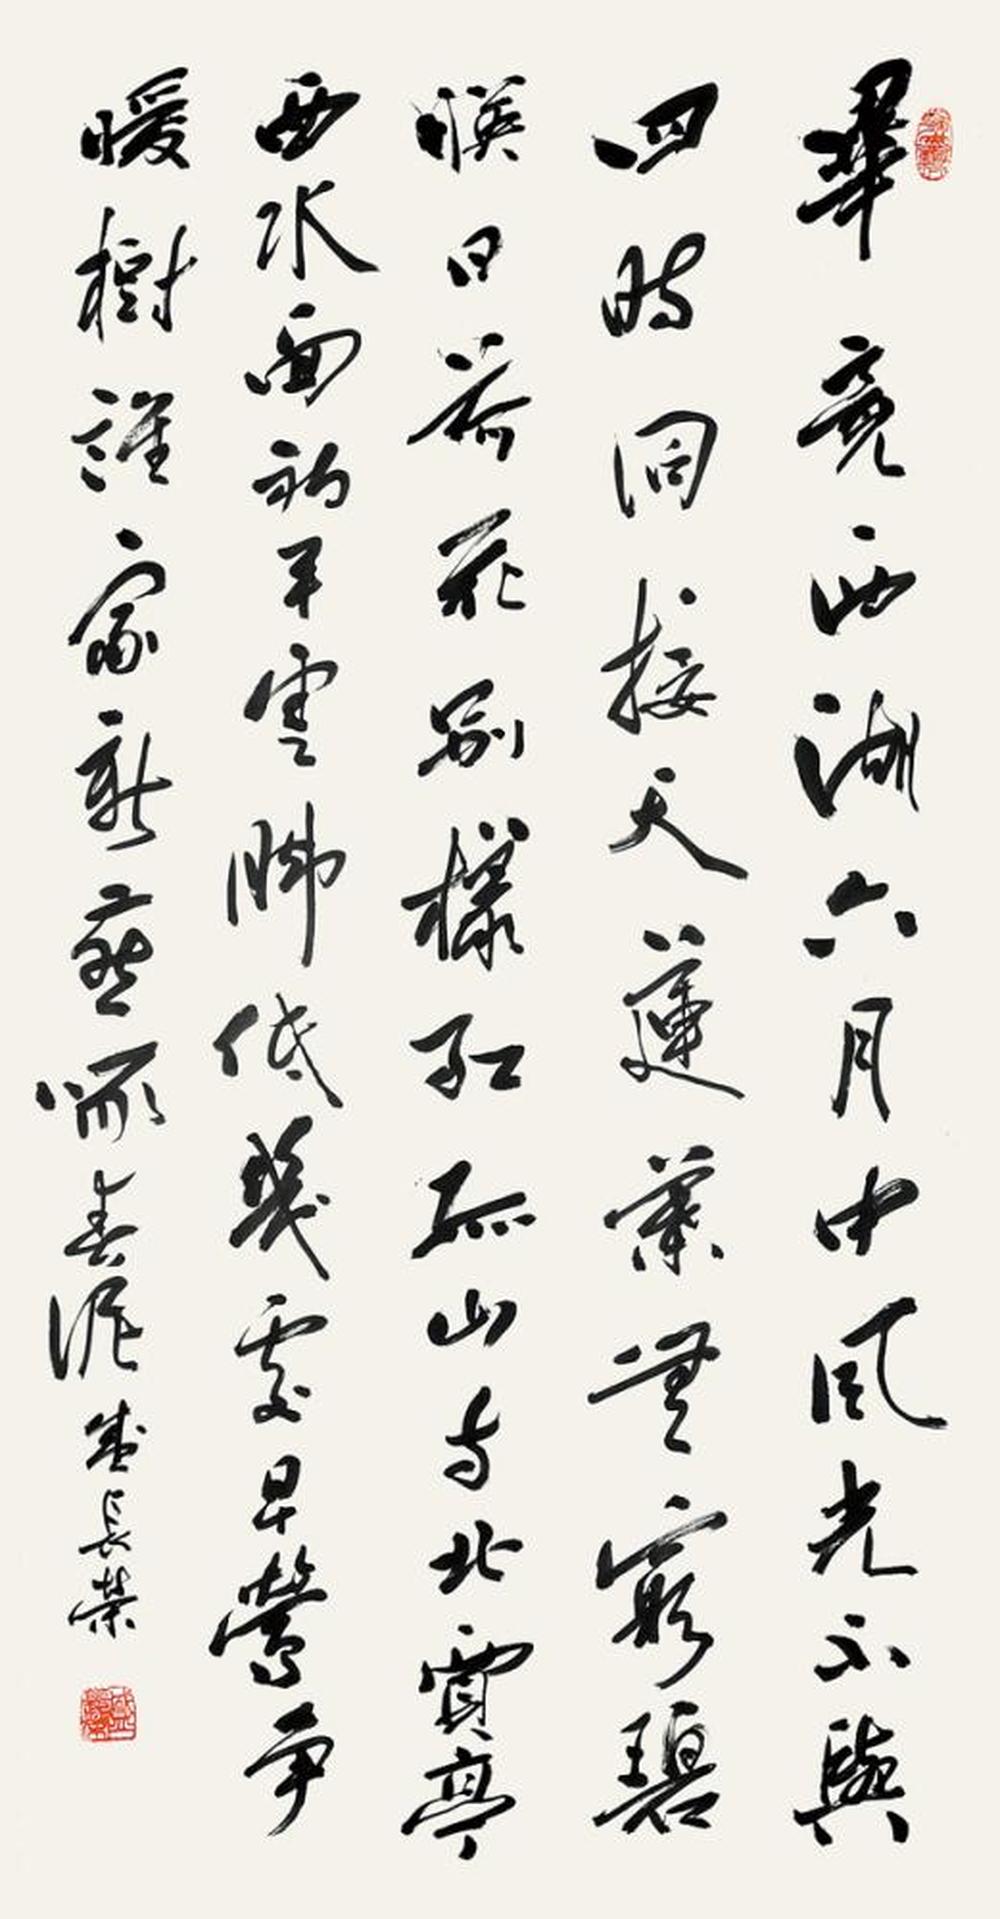 畢竟西湖六月中風光不與
四時同接天蓮葉無窮碧
暎日荷花別樣紅孤山寺北賈亭
西水面初平雲脚低幾處早鶯争
暖樹誰家新燕啄春泥盛長榮